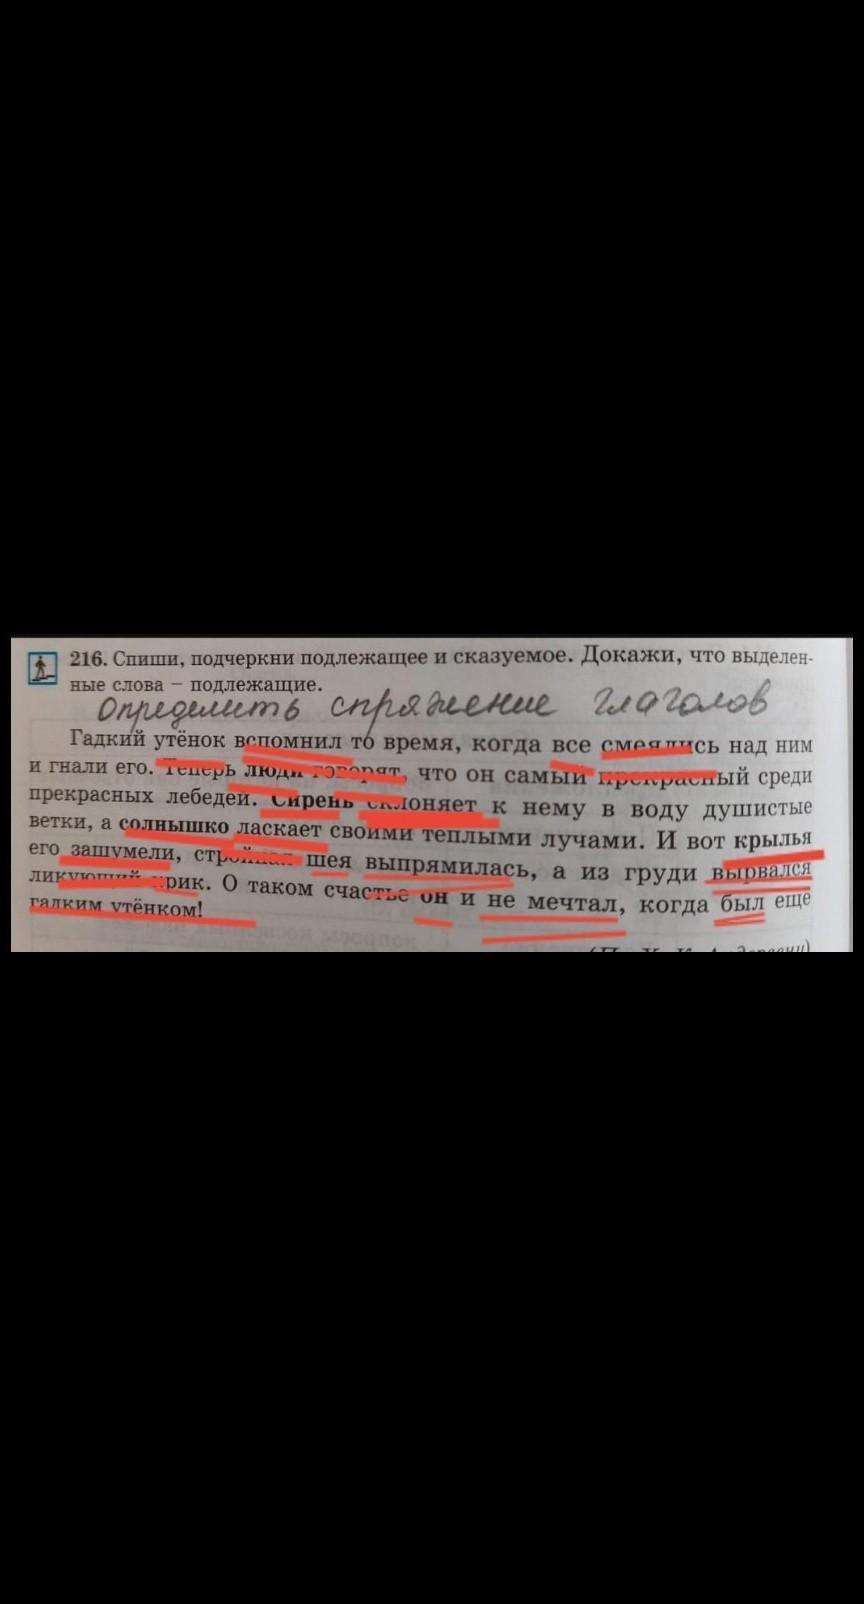 216. Спиши, подчеркни подлежащее и сказуемое. Докажи, что выделен-
ные слова – подлежащие.
Определить спряжение глаголов
Гадкий утёнок вспомнил то время, когда все смеялись над ним
и гнали его. Теперь люди говорят, что он самый прекрасный среди
прекрасных лебедей. Сирень склоняет к нему в воду душистые
ветки, а солнышко ласкает своими тёплыми лучами. И вот крылья
его зашумели, стройная шея выпрямилась, а из груди вырвался
ликующий крик. О таком счастье он и не мечтал, когда был ещё
гадким утёнком!